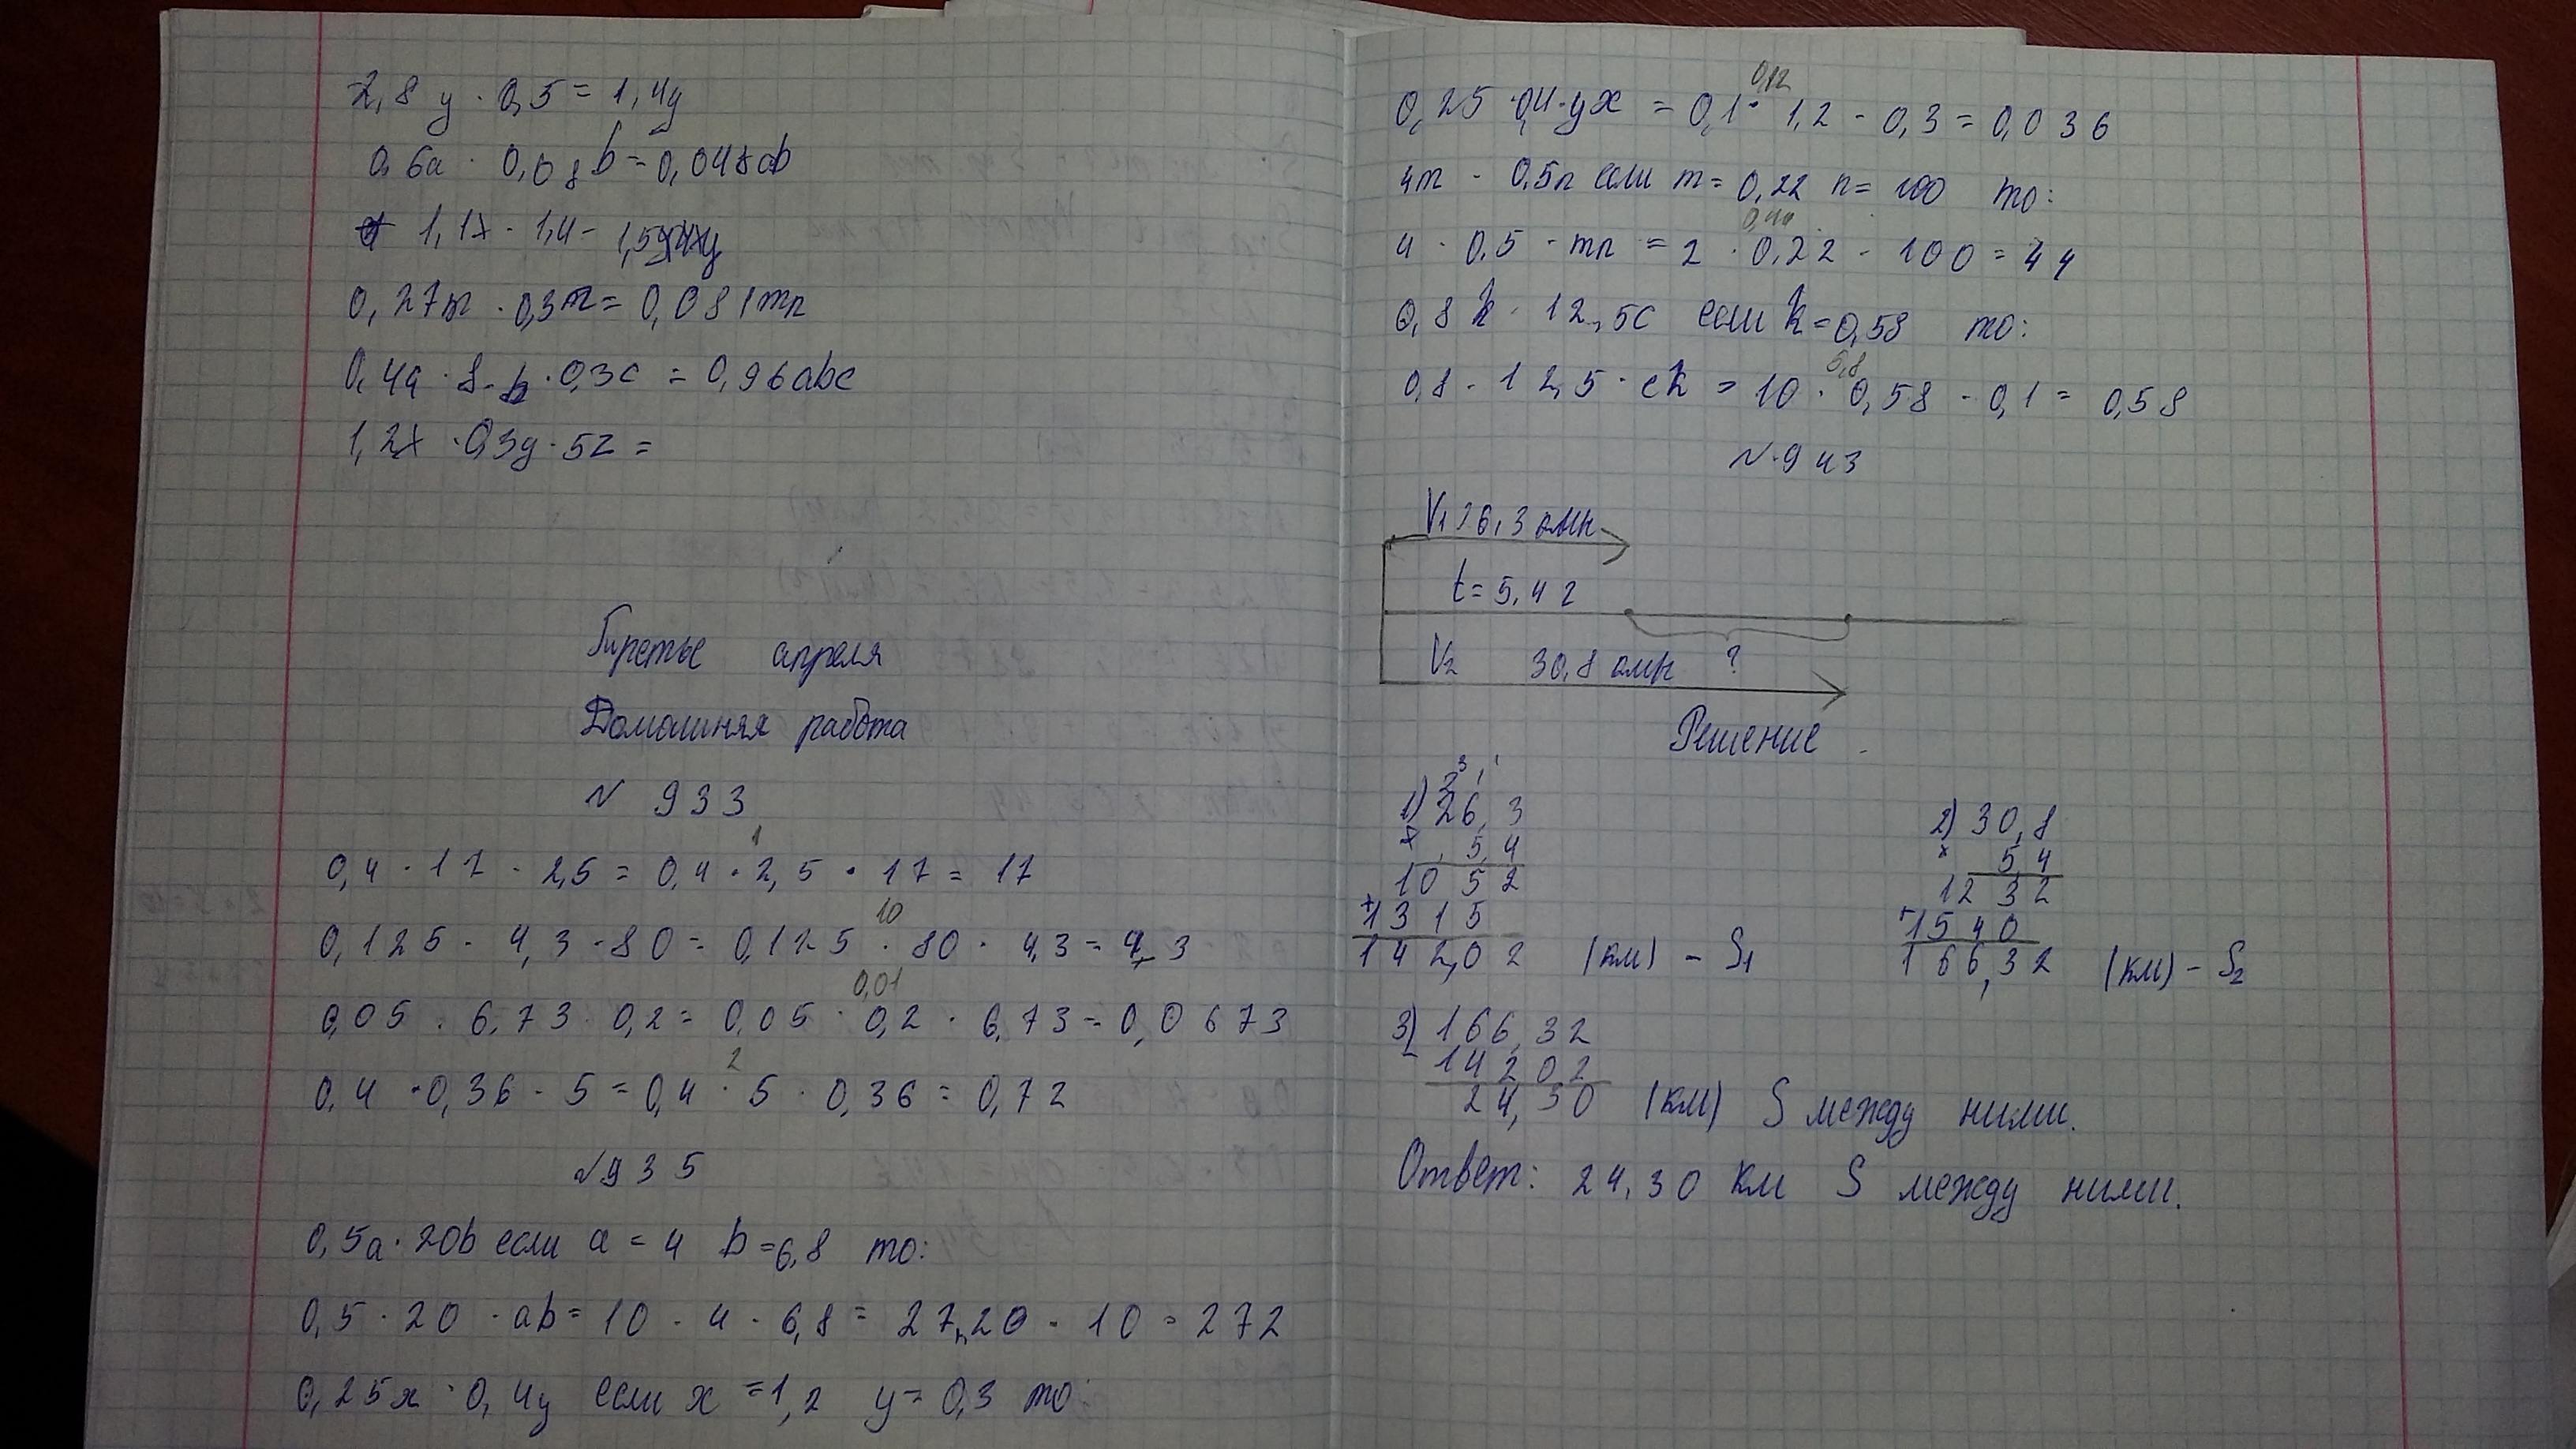 2,8 y · 0,5 = 1,4y
0,6a · 0,08 b = 0,048ab
1,1x · 1,4 =
0,27m · 0,3n = 0,081mn
0,4a · 8 · b · 0,3c = 0,96abc
1,2x · 0,3y · 5z =
Третье апреля
Домашняя работа
N 933
1
0,4 · 17 · 2,5 = 0,4 · 2,5 · 17 = 17
10
0,125 · 4,3 · 80 = 0,125 · 80 · 4,3 = 43
0,01
0,05 · 6,73 · 0,2 = 0,05 · 0,2 · 6,73 = 0,0673
2
0,4 · 0,36 · 5 = 0,4 · 5 · 0,36 = 0,72
N935
0,5a · 20b если a = 4 b = 6,8 то:
0,5 · 20 · ab = 10 · 4 · 6,8 = 27,20 · 10 = 272
0,25x · 0,4y если x = 1,2 y = 0,3 то:
0,12
0,25 · 0,4 · yx = 0,1 · 1,2 · 0,3 = 0,036
4m · 0,5n если m = 0,22 n = 100 то:
0,44
4 · 0,5 · mn = 2 · 0,22 · 100 = 44
0,8k · 12,5c если k = 0,58 то:
5,8
0,8 · 12,5 · ck = 10 · 0,58 · 0,1 = 0,58
N·943
V1 26,3
t = 5,4 ч
V2 30,8 ?
Решение
1) 26,3
× 5,4
1052
+1315
142,02 (км) - S1
2) 30,8
× 5,4
1232
+1540
166,32 (км) - S2
3) 166,32
- 14202
24,30 (км) S между ними.
Ответ: 24,30 км S между ними.